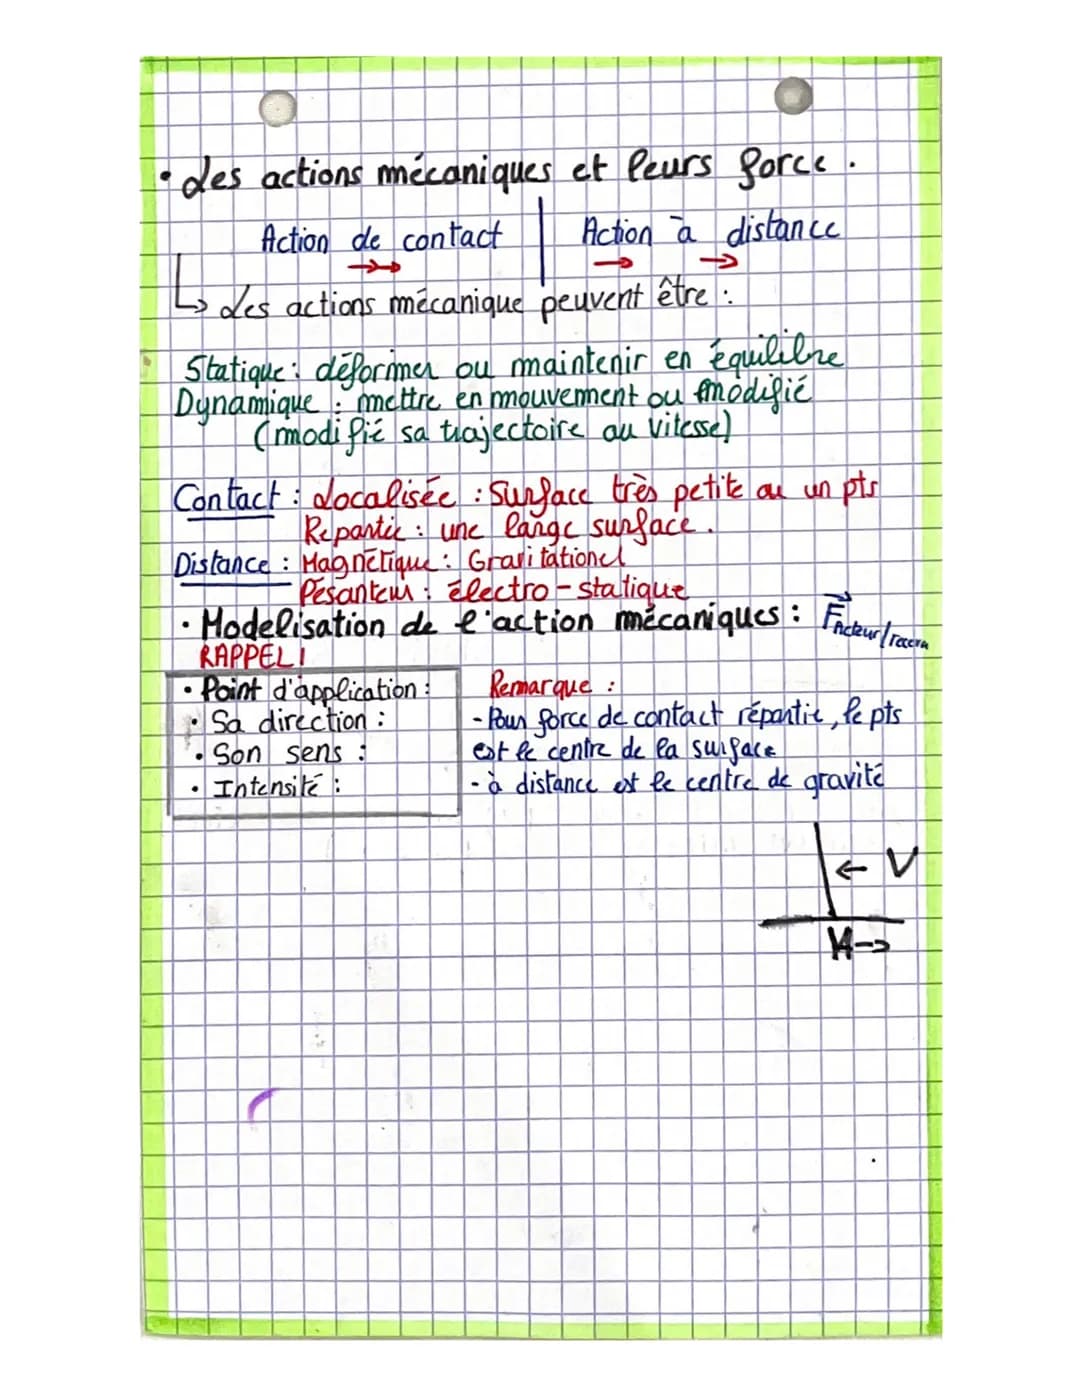 • Les actions mécaniques et leurs force.
Action de contact | Action à distance
↳ Les actions mécanique peuvent être :
Statique : déformer ou maintenir en équilibre
Dynamique : mettre en mouvement ou modifié
(modifié sa trajectoire ou vitesse)
Contact : Localisée : Surface très petite ou un pts
Repartie : une large surface.
Distance : Magnétique : Gravitationel
Pésanteur : électro-statique
• Modelisation de l'action mécaniques : F acteur/receveur
RAPPEL !
• Point d'application :
• Sa direction :
• Son sens :
• Intensité :
Remarque :
- Pour force de contact répartie, le pts
est le centre de la surface
- à distance est le centre de gravité
← V